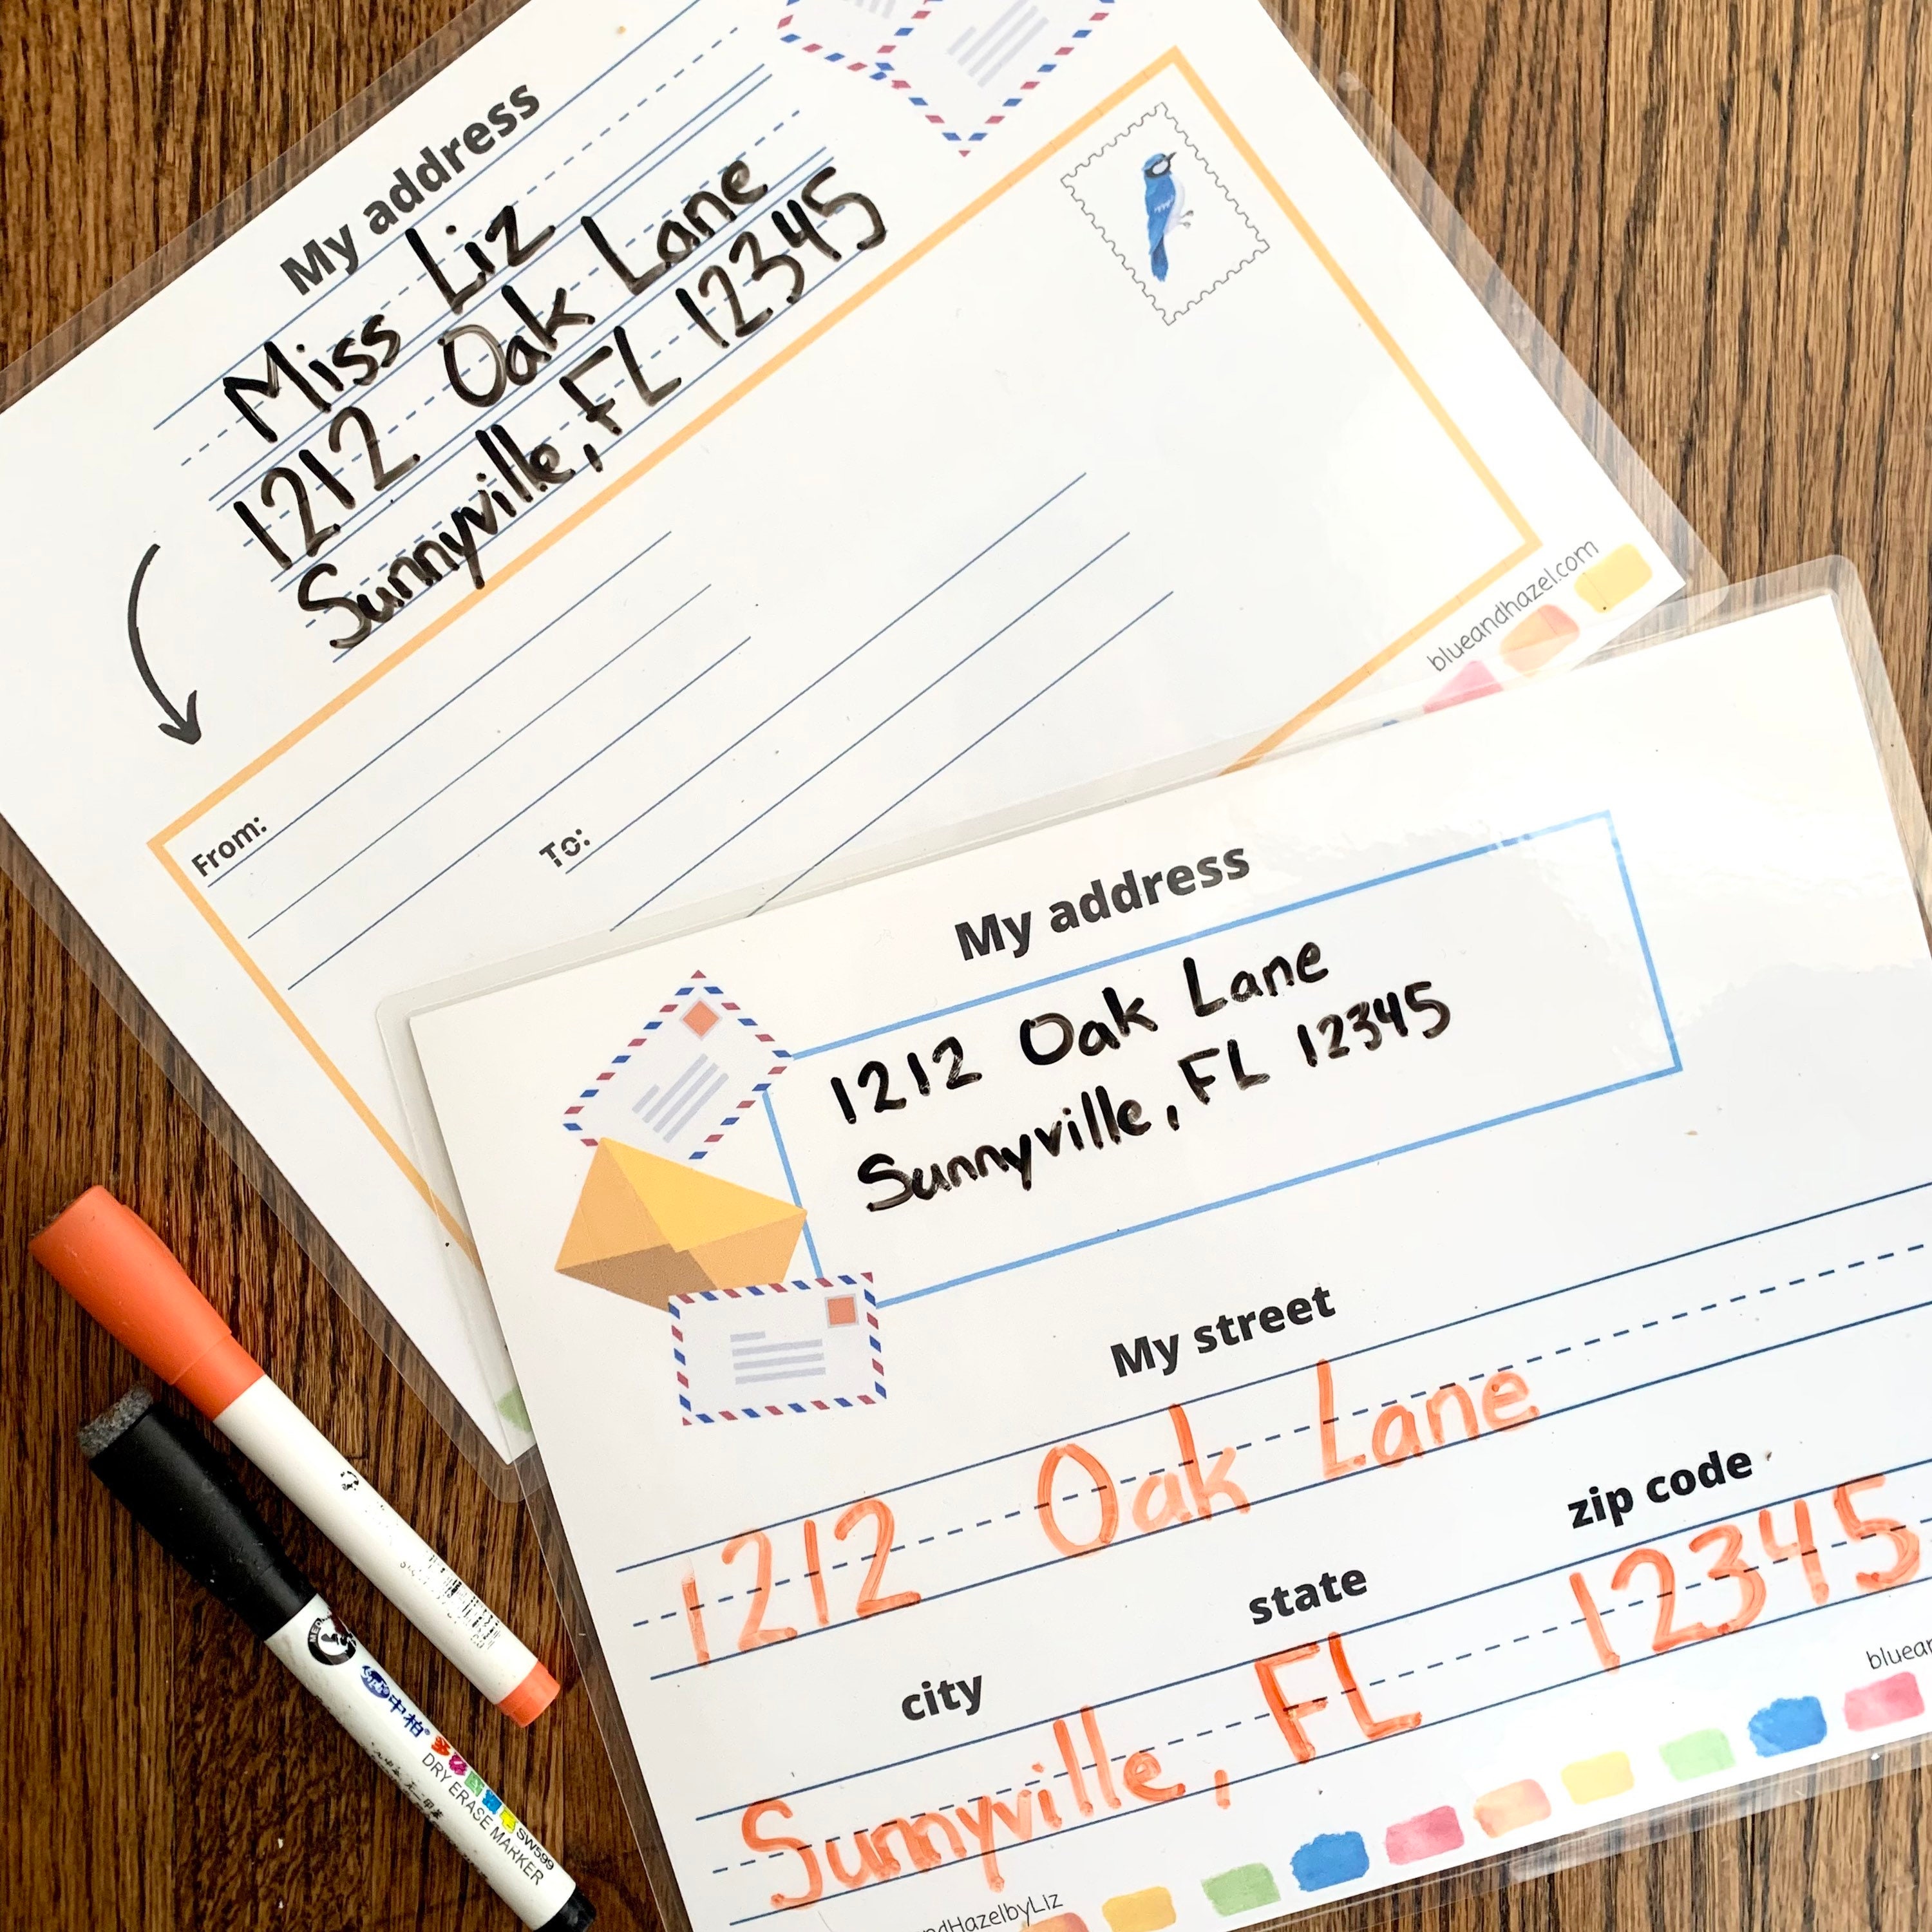 My address
Miss Liz
1212 Oak Lane
Sunnyville, FL 12345
From:
To:
blueandhazel.com
My address
1212 Oak Lane
Sunnyville, FL 12345
My street
1212 Oak Lane
city state zip code
Sunnyville, FL 12345
中柏
DRY ERASE MARKER
SW599